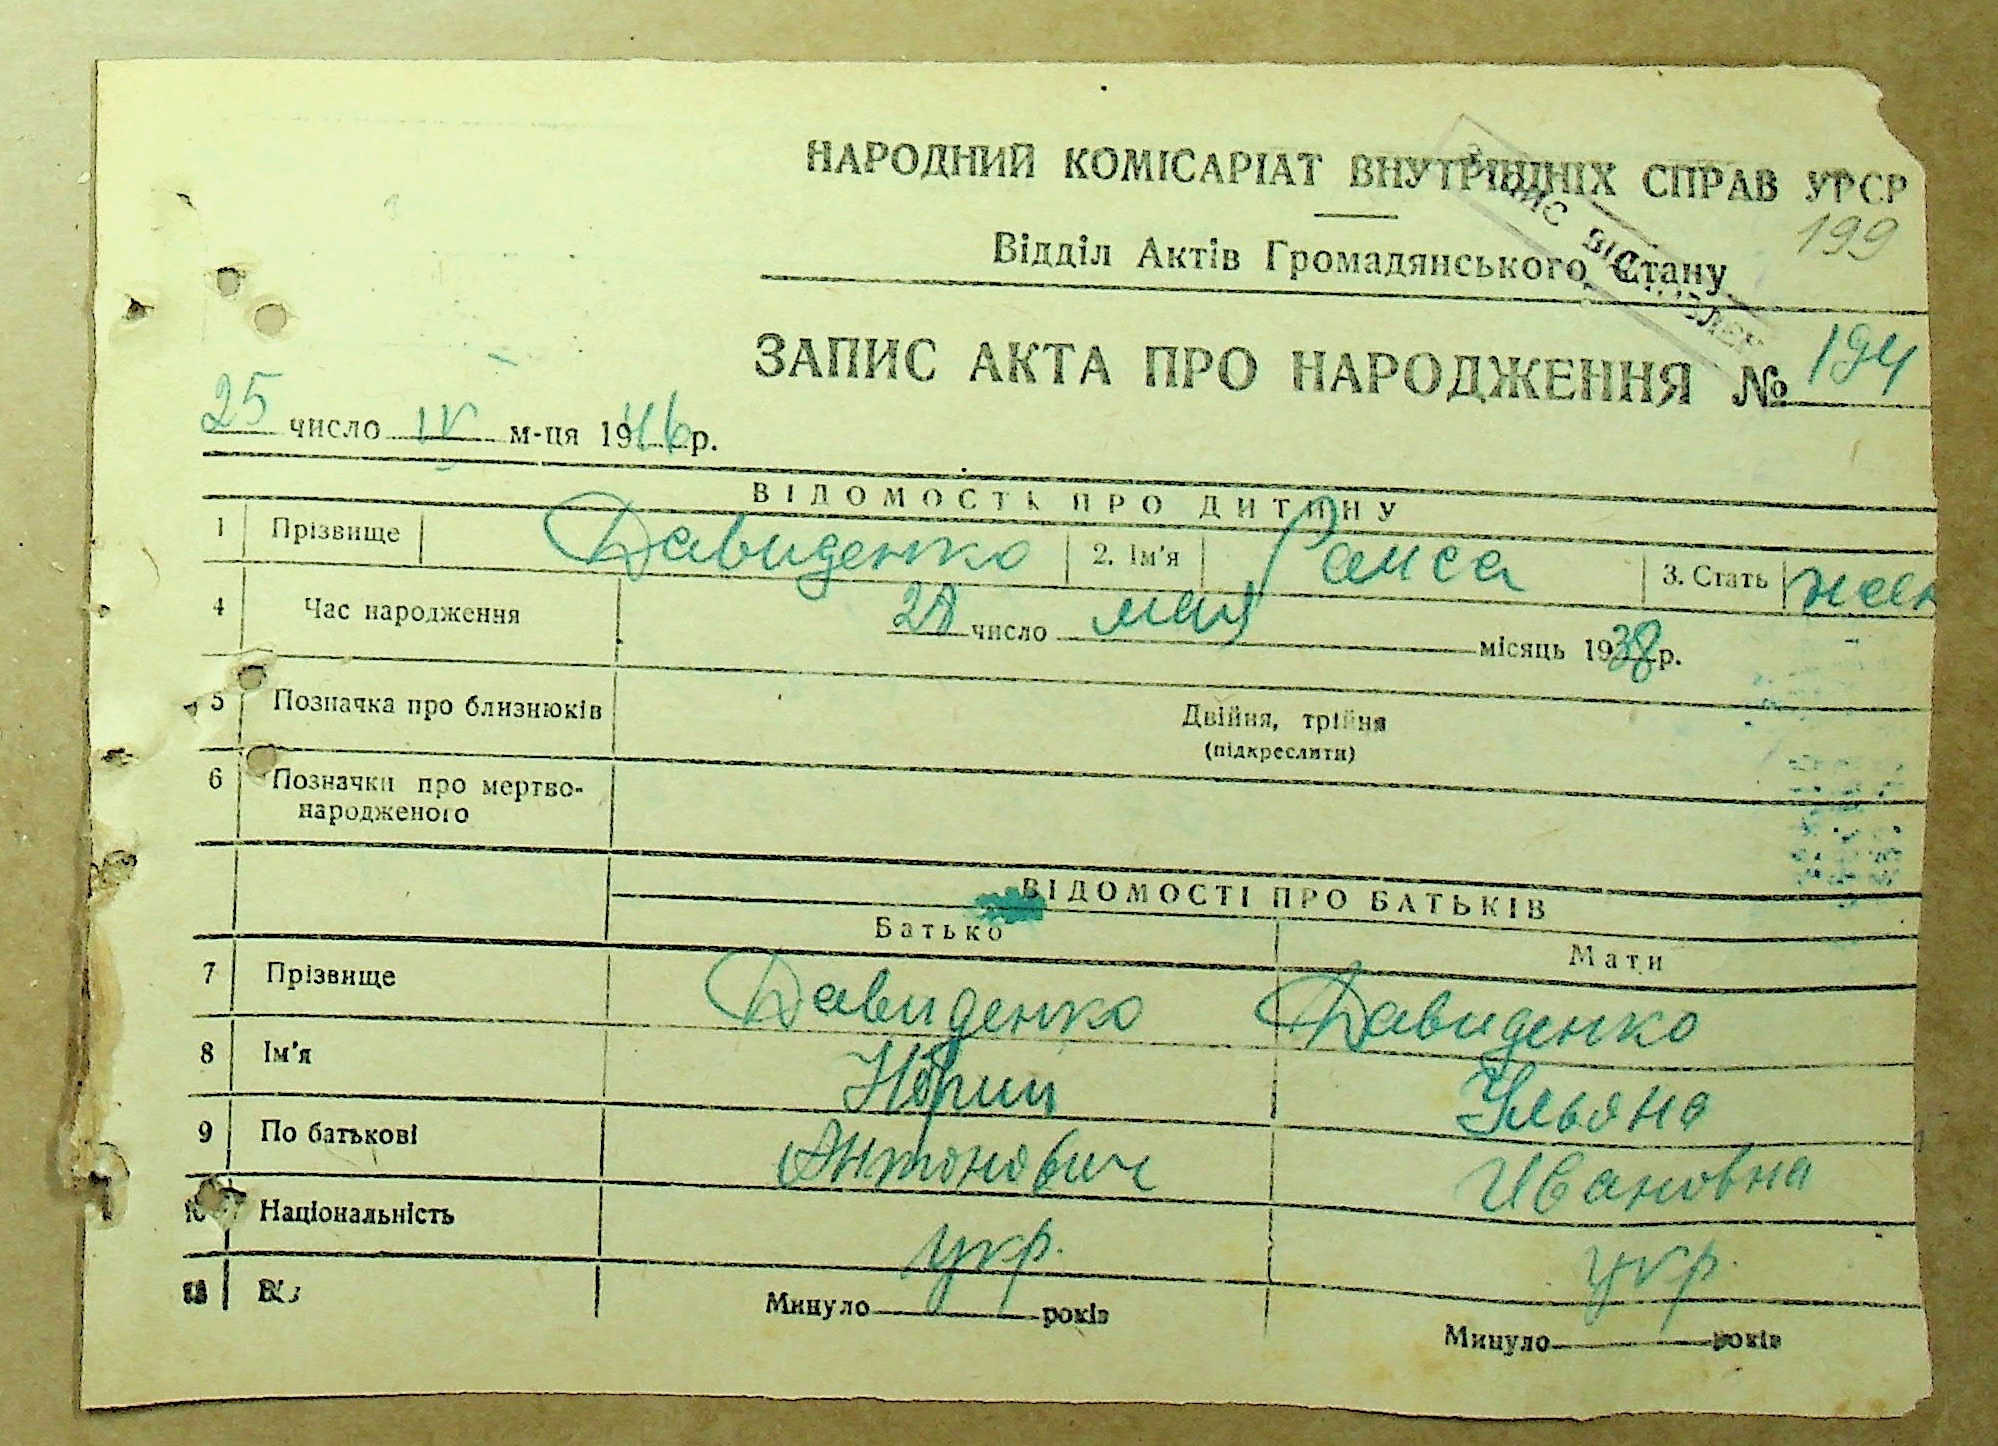 НАРОДНИЙ КОМІСАРІАТ ВНУТРІШНІХ СПРАВ УРСР
199
Відділ Актів Громадянського Стану
ЗАПИС ВІДНОВЛЕН
ЗАПИС АКТА ПРО НАРОДЖЕННЯ № 194
25 число IV м-ця 1946 р.
ВІДОМОСТІ ПРО ДИТИНУ
1 Прізвище Давиденко 2. Ім'я Раиса 3. Стать жен
4 Час народження 28 число мая місяць 1938 р.
5 Позначка про близнюків Двійня, трійня
(підкреслити)
6 Позначки про мертво-
народженого
ВІДОМОСТІ ПРО БАТЬКІВ
Батько Мати
7 Прізвище Давиденко Давиденко
8 Ім'я Юрий Ульяна
9 По батькові Антонович Ивановна
10 Національність укр. укр.
Минуло років Минуло років